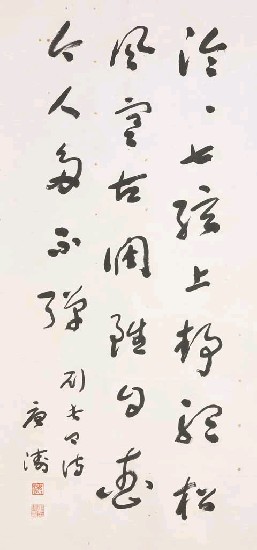 泠〻七弦上靜聽松
風寒古調雖自愛
今人多不彈
劉長卿詩
唐濤